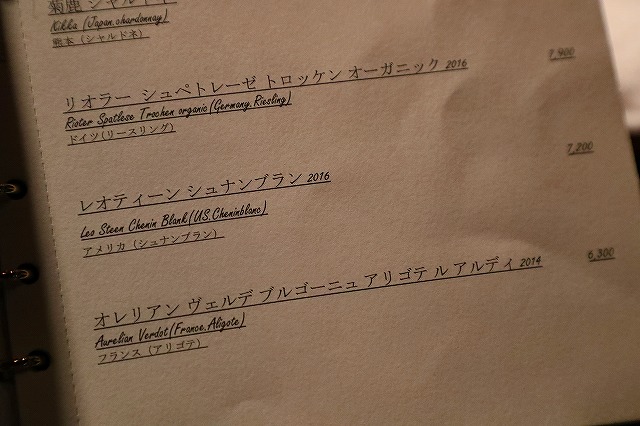 菊鹿 シャルドネ
Kikka (Japan.chardonnay)
熊本（シャルドネ）
リオラー シュペトレーゼ トロッケン オーガニック 2016 7,900
Rioter Spatlese Trochen organic(Germany.Riesling)
ドイツ(リースリング)
レオティーン シュナンブラン 2016 7,200
Leo Steen Chenin Blank(US.Cheninblanc)
アメリカ（シュナンブラン）
オレリアン ヴェルデ ブルゴーニュ アリゴテ ル アルディ 2014 6,300
Aurelian Verdot(France.Aligote)
フランス（アリゴテ）